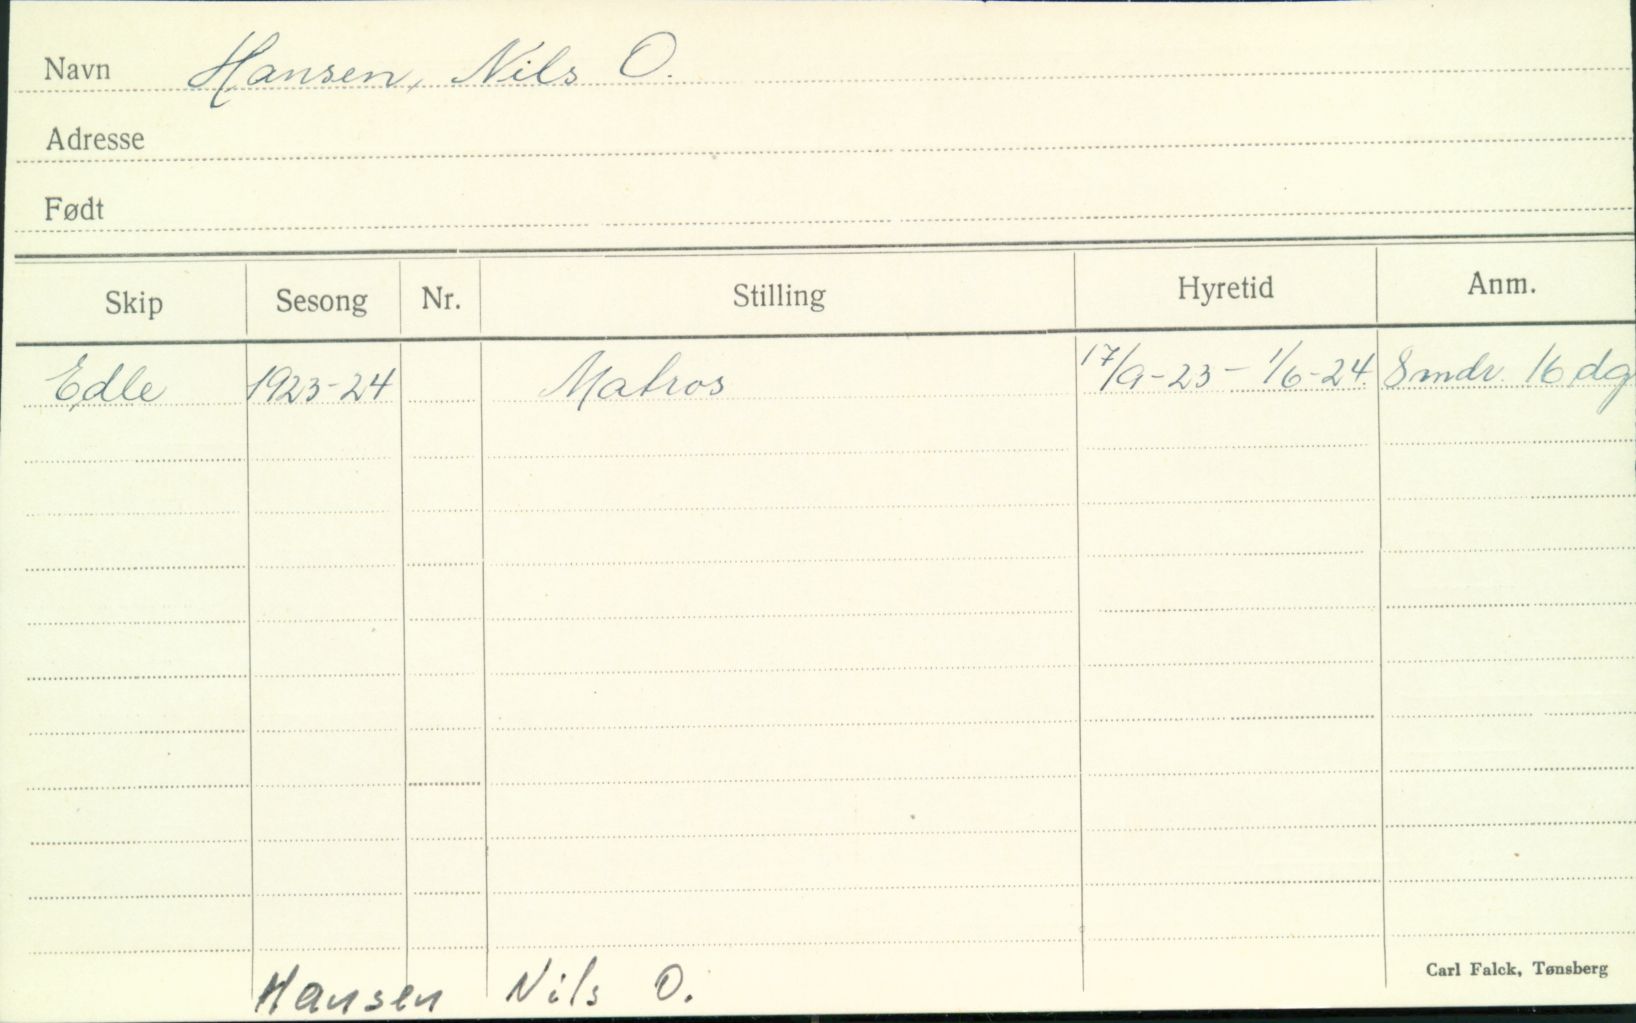 Navn Hansen, Nils O.
Adresse
Født
Skip Sesong Nr. Stilling Hyretid Anm.
Edle 1923-24 Matros 17/9-23 - 1/6-24. 8 mdr. 16 dg
Carl Falck, Tønsberg
Hansen Nils O.